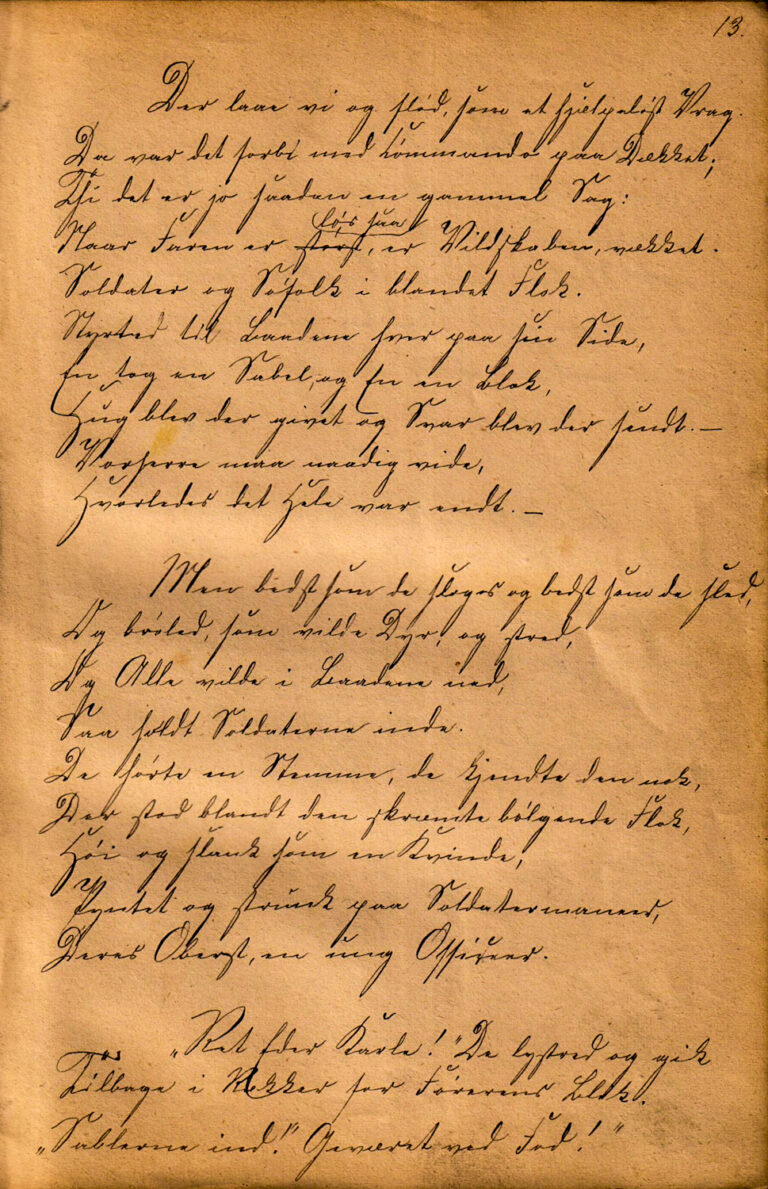 13.
Der laae vi og stød, som et hjælpeløst Vrag.
Da var det forbi med Commando paa Dækket;
Thi det er jo saadan en gammel Sag:
løs saa
Naar Faren er størst, er Vildskaben, vækket.
Soldater og Søfolk i blandet Flok.
Styrted til Baadene hver paa sin Side,
En tog en Sabel, og En en Blok,
Hug blev der givet og Svar blev der sendt. —
Vorherre maa naadig vide,
Hvorledes det Hele var endt. —
Men bedst som de sloges og bedst som de sled,
Og brøled, som vilde Dyr, og stred,
Og Alle vilde i Baadene ned,
Saa holdt Soldaterne inde.
De hørte en Stemme, de kjendte den nok,
Der stod blandt den skræmte bølgende Flok,
Høi og slank som en Kvinde,
Pyntet og strunk paa Soldatermaneer,
Deres Oberst, en ung Officeer.
„Ret Eder Karle!" De lystred og gik
Tilbage i Rækker for Førerens Blik.
„Sablerne ind!" Geværet ved Fod!"